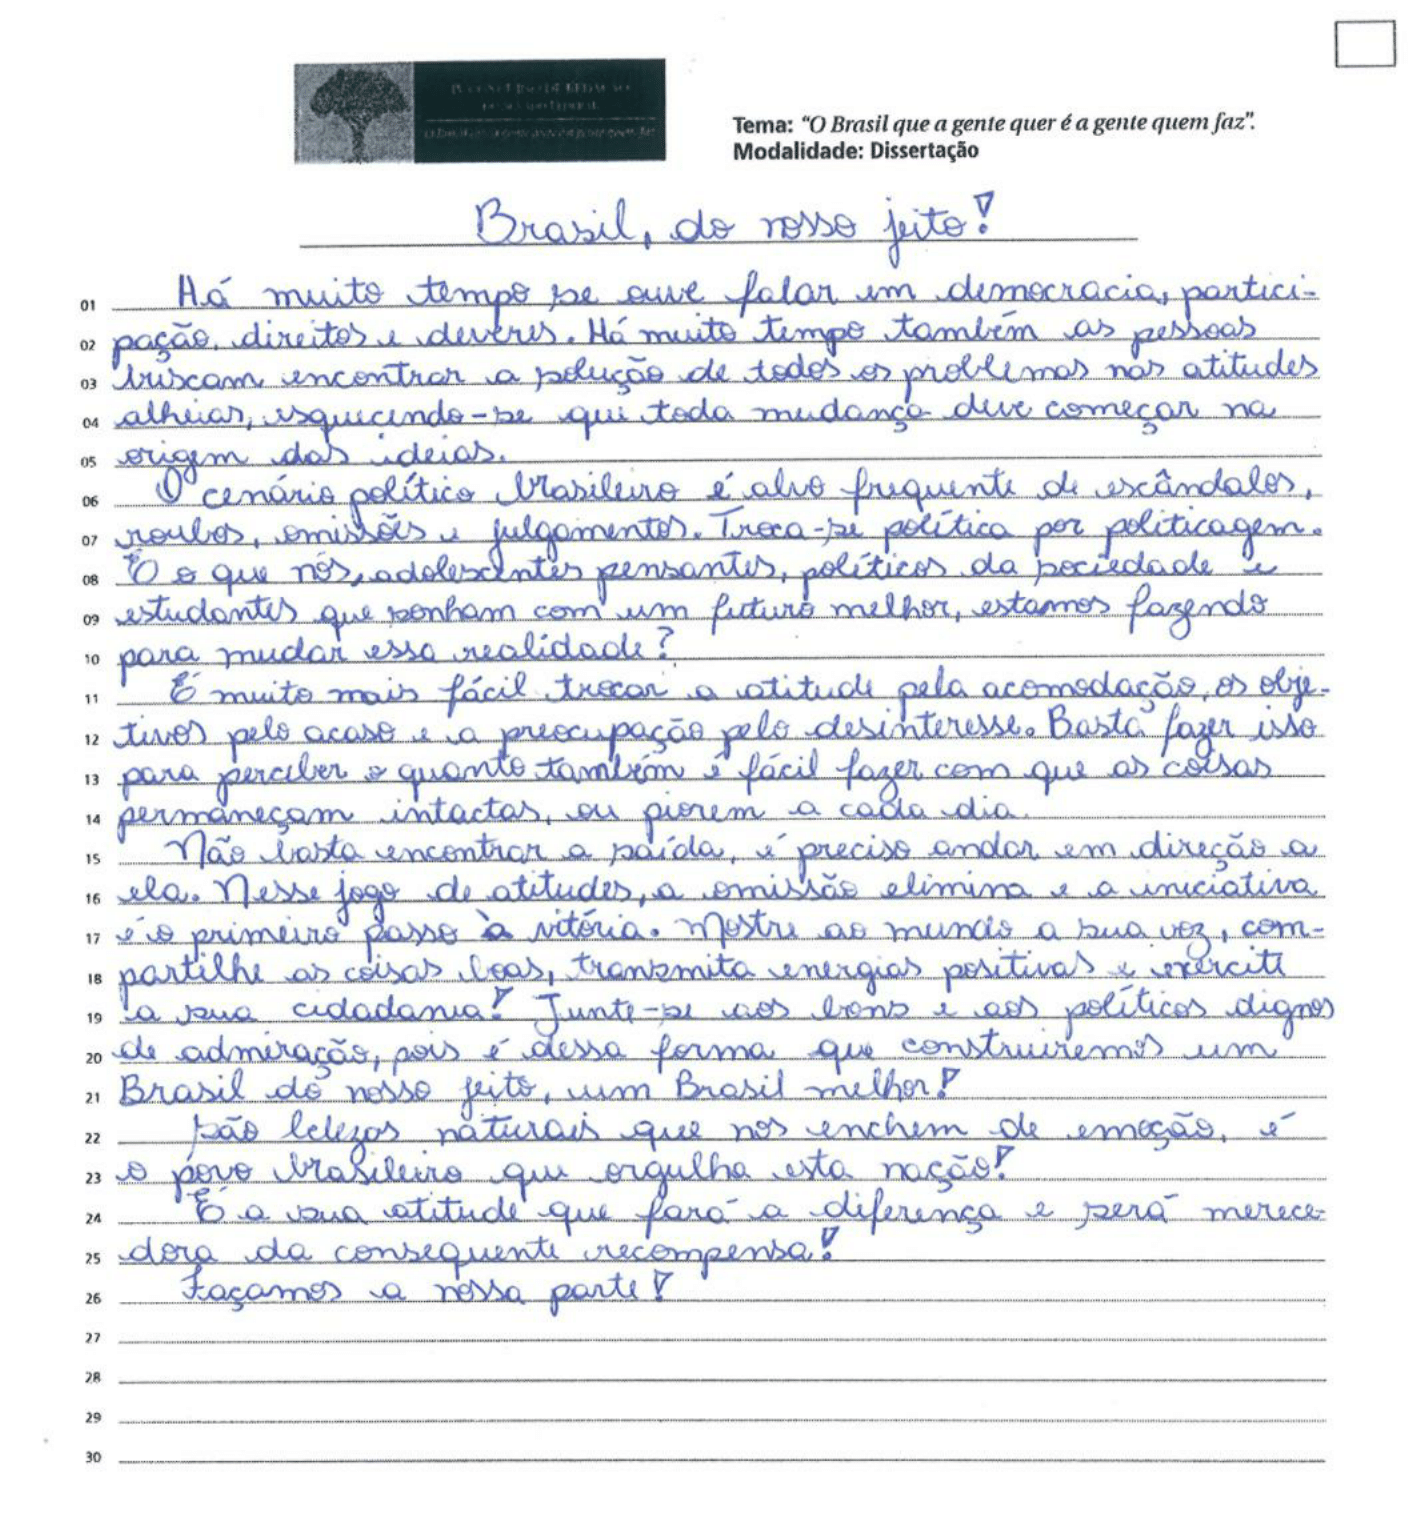 Tema: "O Brasil que a gente quer é a gente quem faz".
Modalidade: Dissertação
Brasil, do nosso jeito!
01 Há muito tempo se ouve falar em democracia, partici-
02 pação, direitos e deveres. Há muito tempo também as pessoas
03 buscam encontrar a solução de todos os problemas nas atitudes
04 alheias, esquecendo-se que toda mudança deve começar na
05 origem das ideias.
06 O cenário político brasileiro é alvo frequente de escândalos,
07 roubos, omissões e julgamentos. Troca-se política por politicagem.
08 E o que nós, adolescentes pensantes, políticos da sociedade e
09 estudantes que sonham com um futuro melhor, estamos fazendo
10 para mudar essa realidade?
11 É muito mais fácil trocar a atitude pela acomodação, os obje-
12 tivos pelo acaso e a preocupação pelo desinteresse. Basta fazer isso
13 para perceber o quanto também é fácil fazer com que as coisas
14 permaneçam intactas, ou piorem a cada dia.
15 Não basta encontrar a saída, é preciso andar em direção a
16 ela. Nesse jogo de atitudes, a omissão elimina e a iniciativa
17 é o primeiro passo à vitória. Mostre ao mundo a sua voz, com-
18 partilhe as coisas boas, transmita energias positivas e exercite
19 a sua cidadania! Junte-se aos bons e aos políticos dignos
20 de admiração, pois é dessa forma que construiremos um
21 Brasil do nosso jeito, um Brasil melhor!
22 São belezas naturais que nos enchem de emoção, é
23 o povo brasileiro que orgulha esta nação!
24 É a sua atitude que fará a diferença e será merece-
25 dora da consequente recompensa!
26 Façamos a nossa parte!
27
28
29
30